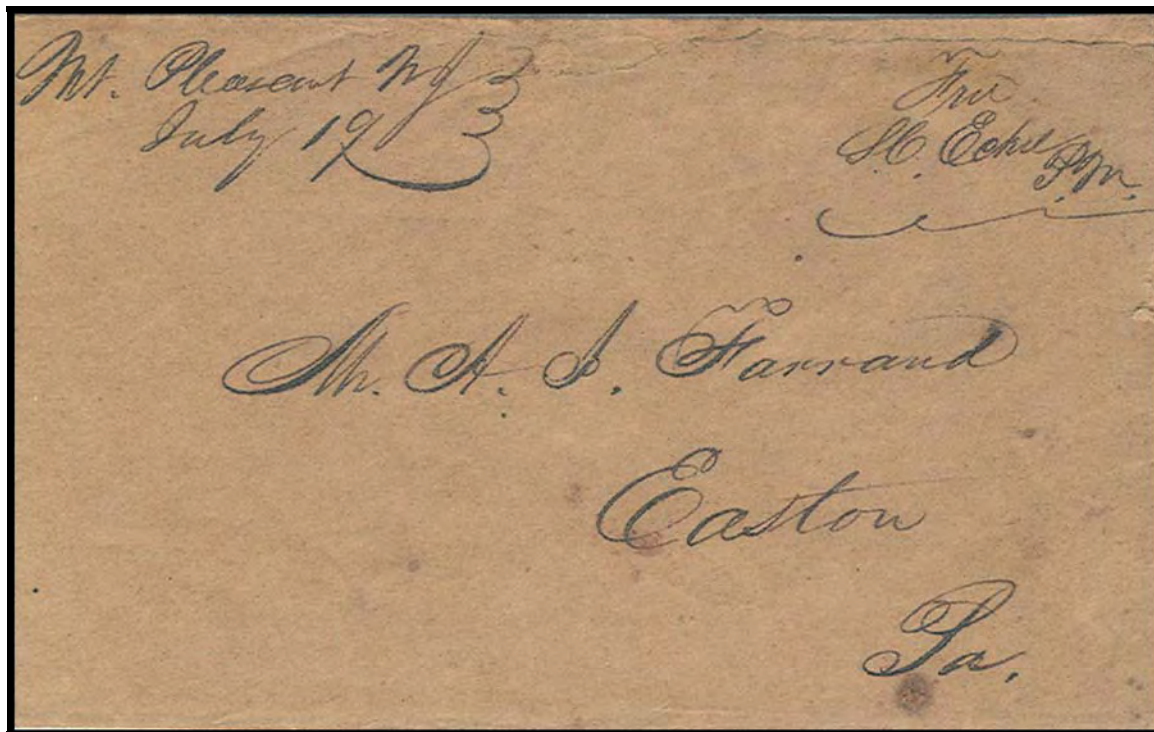 Mt. Pleasant NJ
July 19
Free
P.M.
Mr. A. S. Farrand
Easton
Pa.